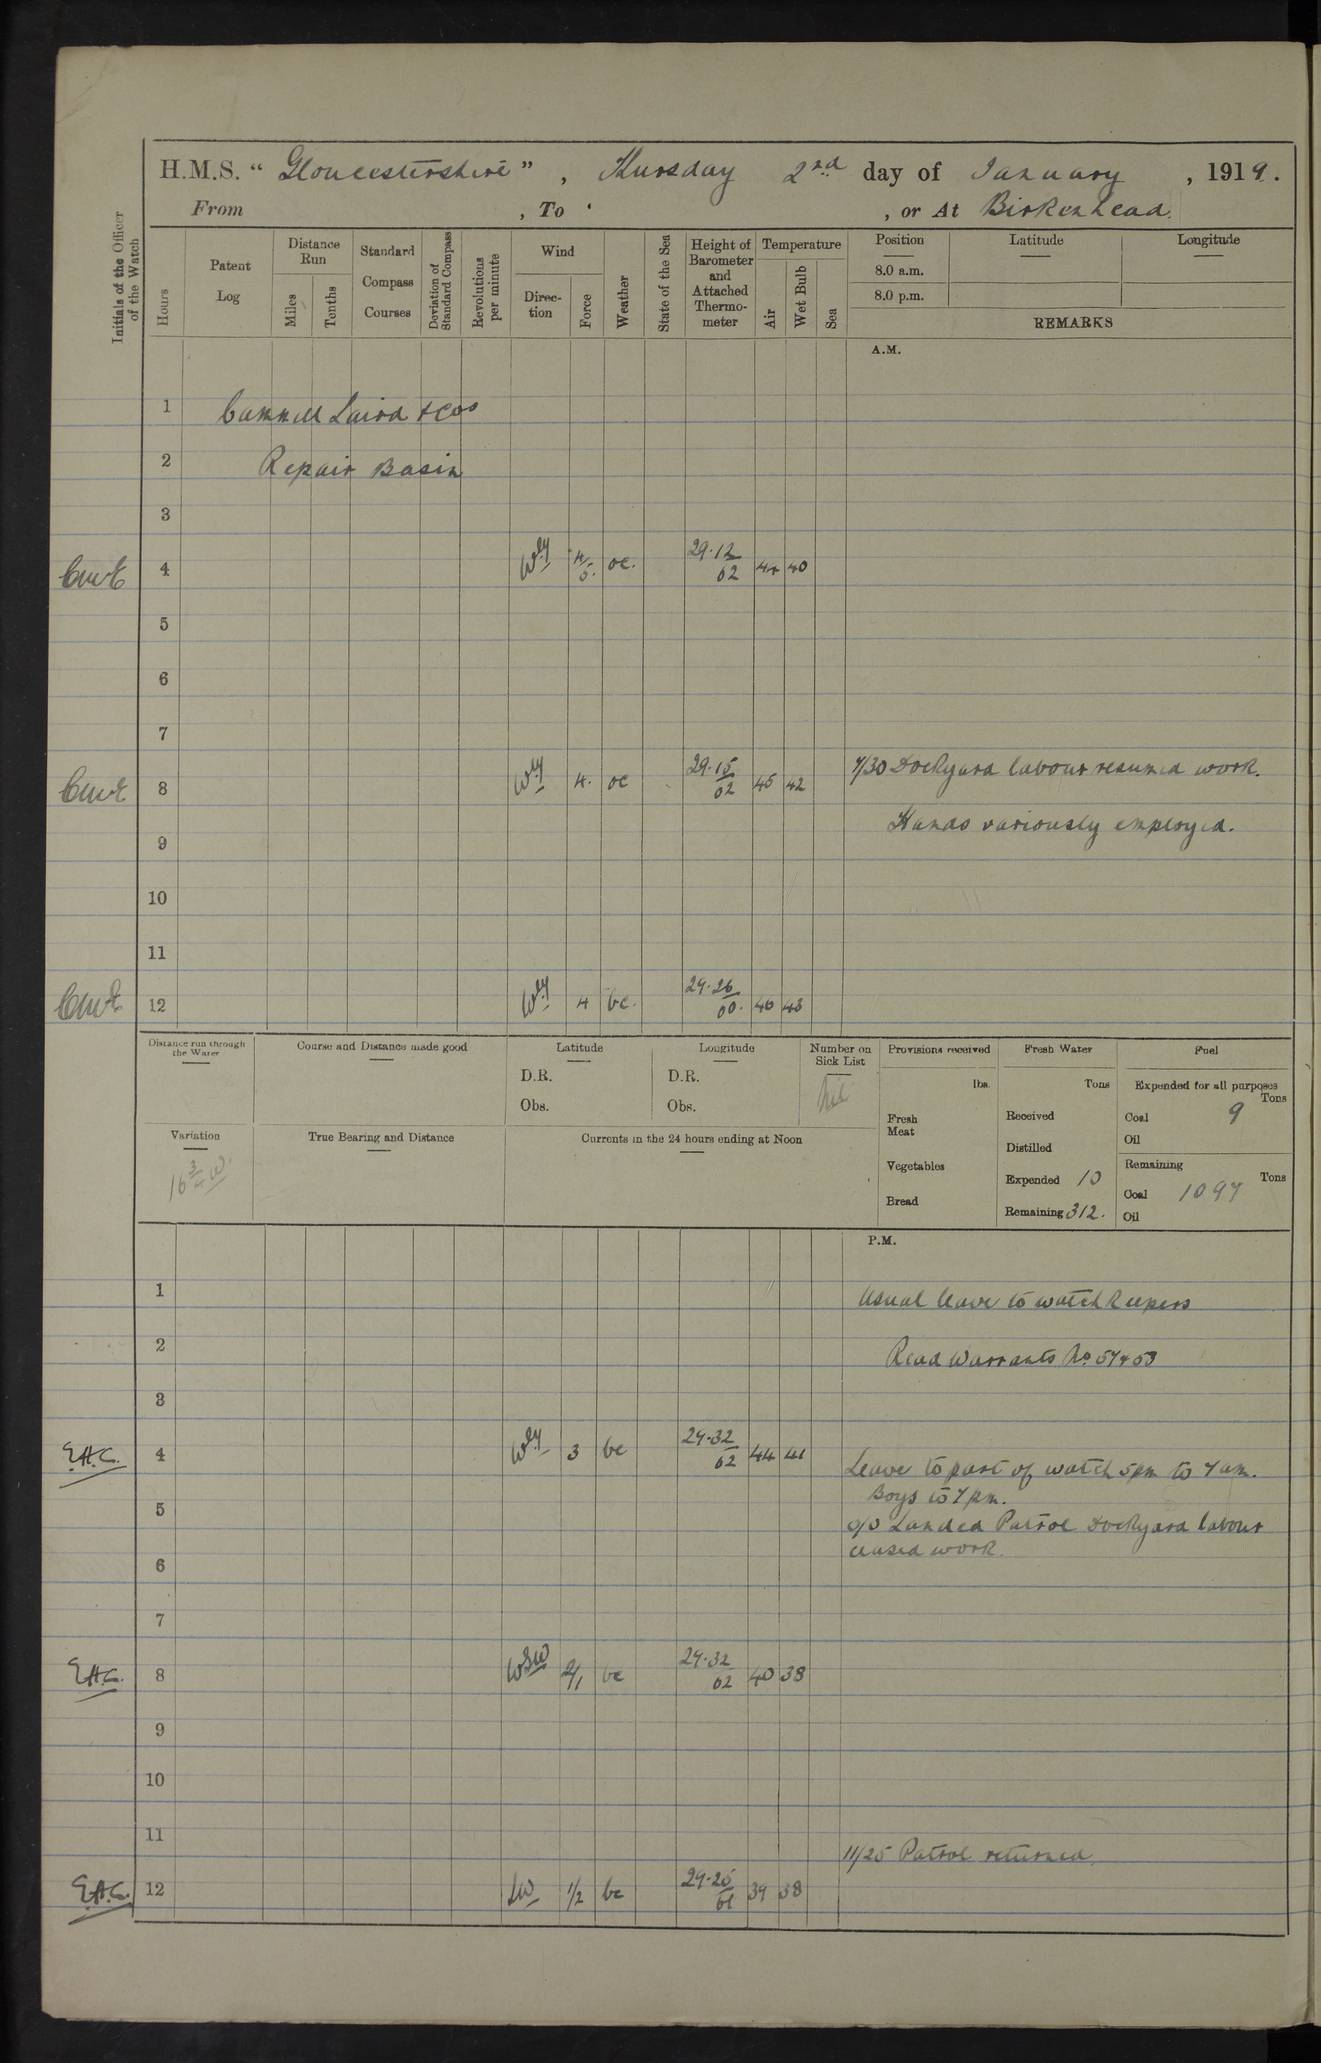 H.M.S. “ Gloucestershire ” , Thursday 2nd day of January , 1919.
From , To , or At Birkenhead.
Initials of the Officer of the Watch
Hours
Patent Log
Distance Run
Miles
Tenths
Standard Compass Courses
Deviation of Standard Compass
Revolutions per minute
Wind
Direc-tion
Force
Weather
State of the Sea
Height of Barometer and Attached Thermo-meter
Temperature
Air
Wet Bulb
Sea
Position
Latitude
Longitude
8.0 a.m.
8.0 p.m.
REMARKS
A.M.
1 Cammell Laird & Cos
2 Repair Basin
3
4 Wly 4/5. oc. 29.12 62 44 40
5
6
7
7/30 Dockyard labour resumed work.
8 Wly 4. oc 29.15 62 45 42
Hands variously employed.
9
10
11
12 Wly 4 bc. 29.26 60. 46 43
Distance run through the Water
Course and Distance made good
Latitude
D.R.
Obs.
Longitude
D.R.
Obs.
Number on Sick List
Nil
Provisions received
lbs.
Fresh Meat
Vegetables
Bread
Fresh Water
Tons
Received
Distilled
Expended 10
Remaining 312.
Fuel
Expended for all purposes
Tons
Coal 9
Oil
Remaining
Tons
Coal 1097
Oil
Variation
16 3/4 W.
True Bearing and Distance
Currents in the 24 hours ending at Noon
P.M.
1 Usual leave to watch keepers
2 Read Warrants No. 57 & 58
3
E.A.C. 4 Wly 3 bc 29.32 62 44 41
Leave to part of watch 5pm to 7am.
Boys to 7pm.
5 Landed Patrol Dockyard labour
ceased work.
6
7
E.A.C. 8 WSW 2/1 bc 29.32 62 40 38
9
10
11 11/25 Patrol returned.
E.A.C. 12 SW 1/2 bc 29.25 61 39 38